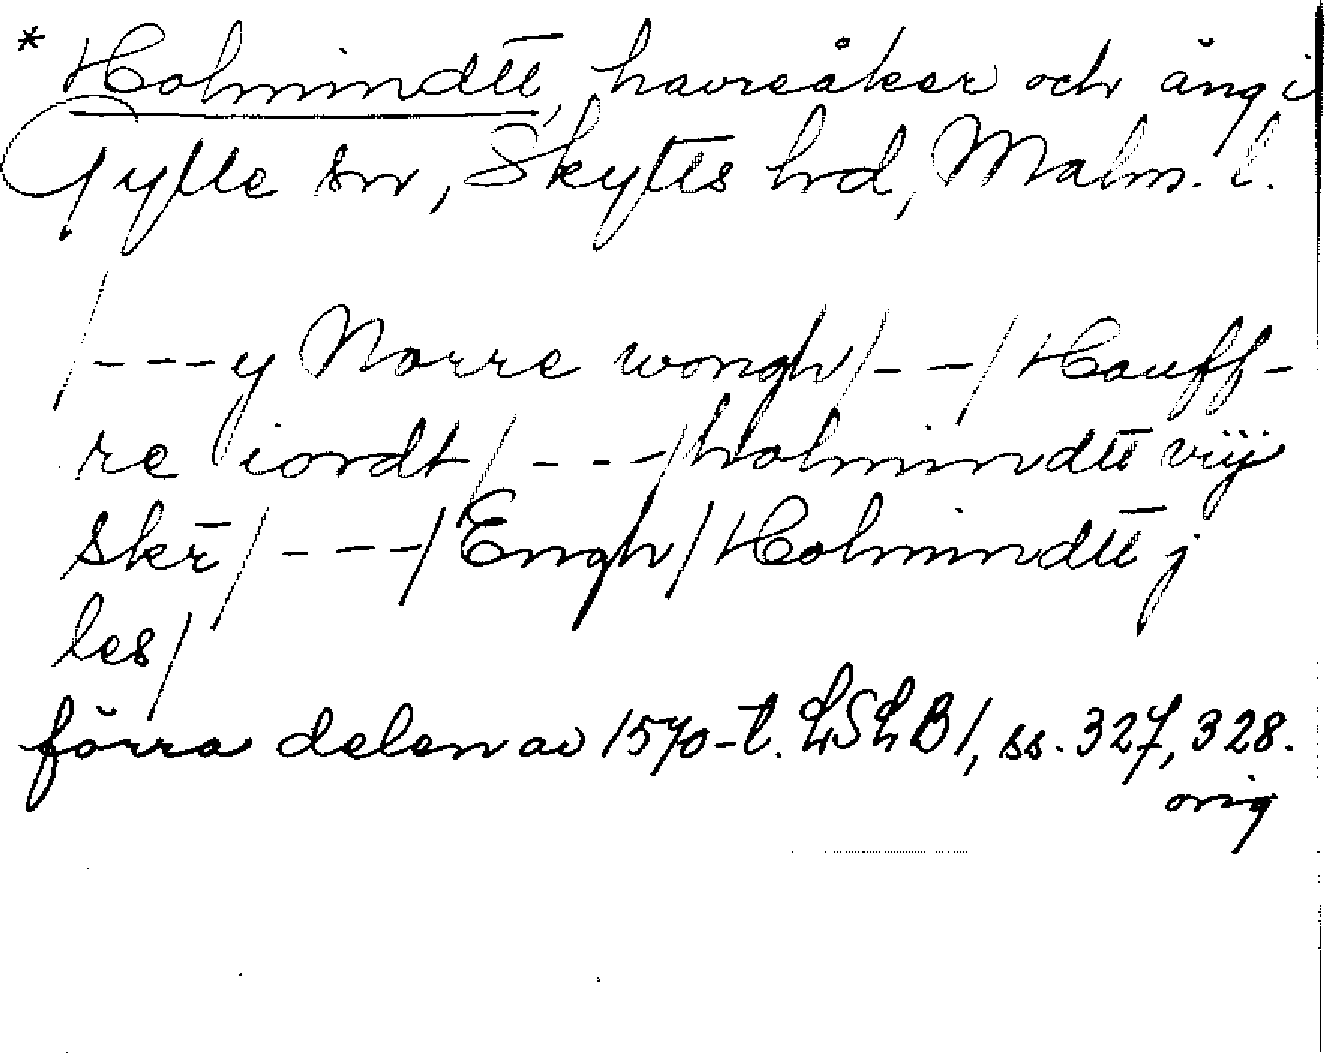 * Holmindtē, havreåker och äng i
Gylle sn, Skytts hd, Malm. l.
/---y Norre wongh/--/Hauff-
re iordt/---/holmindtē viij
skr̄/---/Engh/Holmindtē j
les/
förra delen av 1570-t. LSLB1, ss. 327, 328.
orig